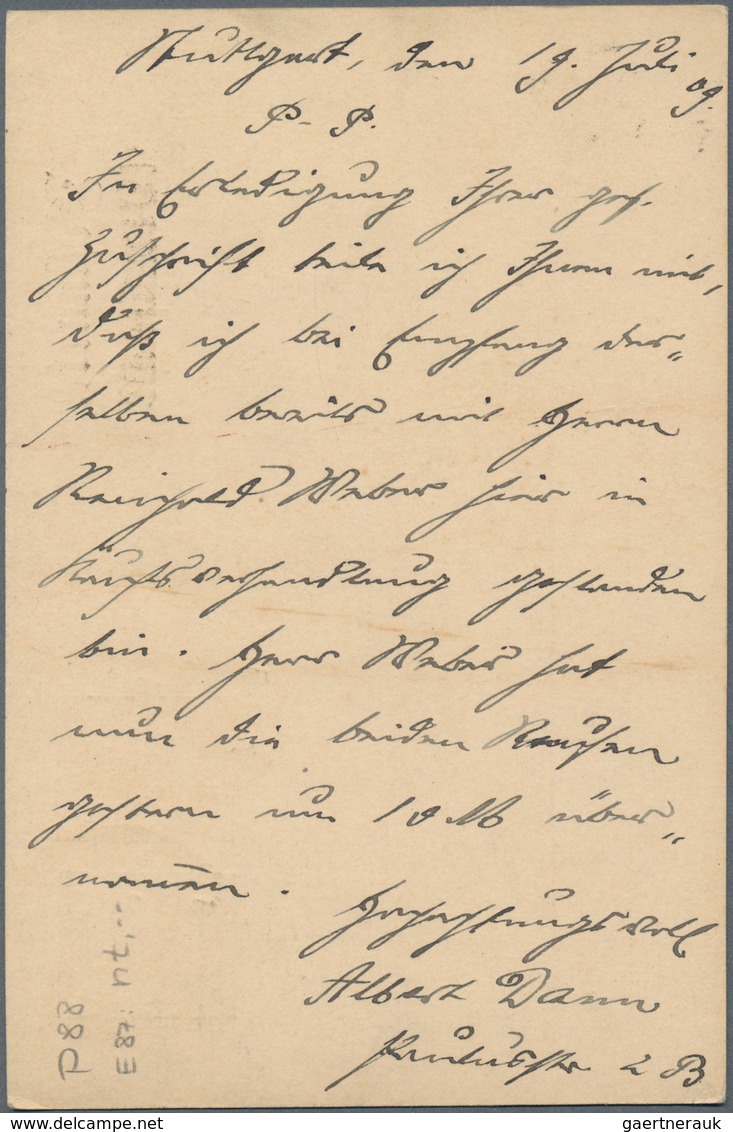 Stuttgart, den 19. Juli 09.
P. P.
In Erledigung Ihrer gef.
Zuschrift teile ich Ihnen mit,
daß ich bei Empfang der„
selben bereits mit Herrn
Reinhold Weber hier in
Kaufsverhandlung gestanden
bin. Herr Weber hat
nun die beiden
gestern um 10 M über„
nom̅en.
Hochachtungsvoll
Albert Dann
Paulusstr 2 B
P88
E87: nt,--
gaertnerauk